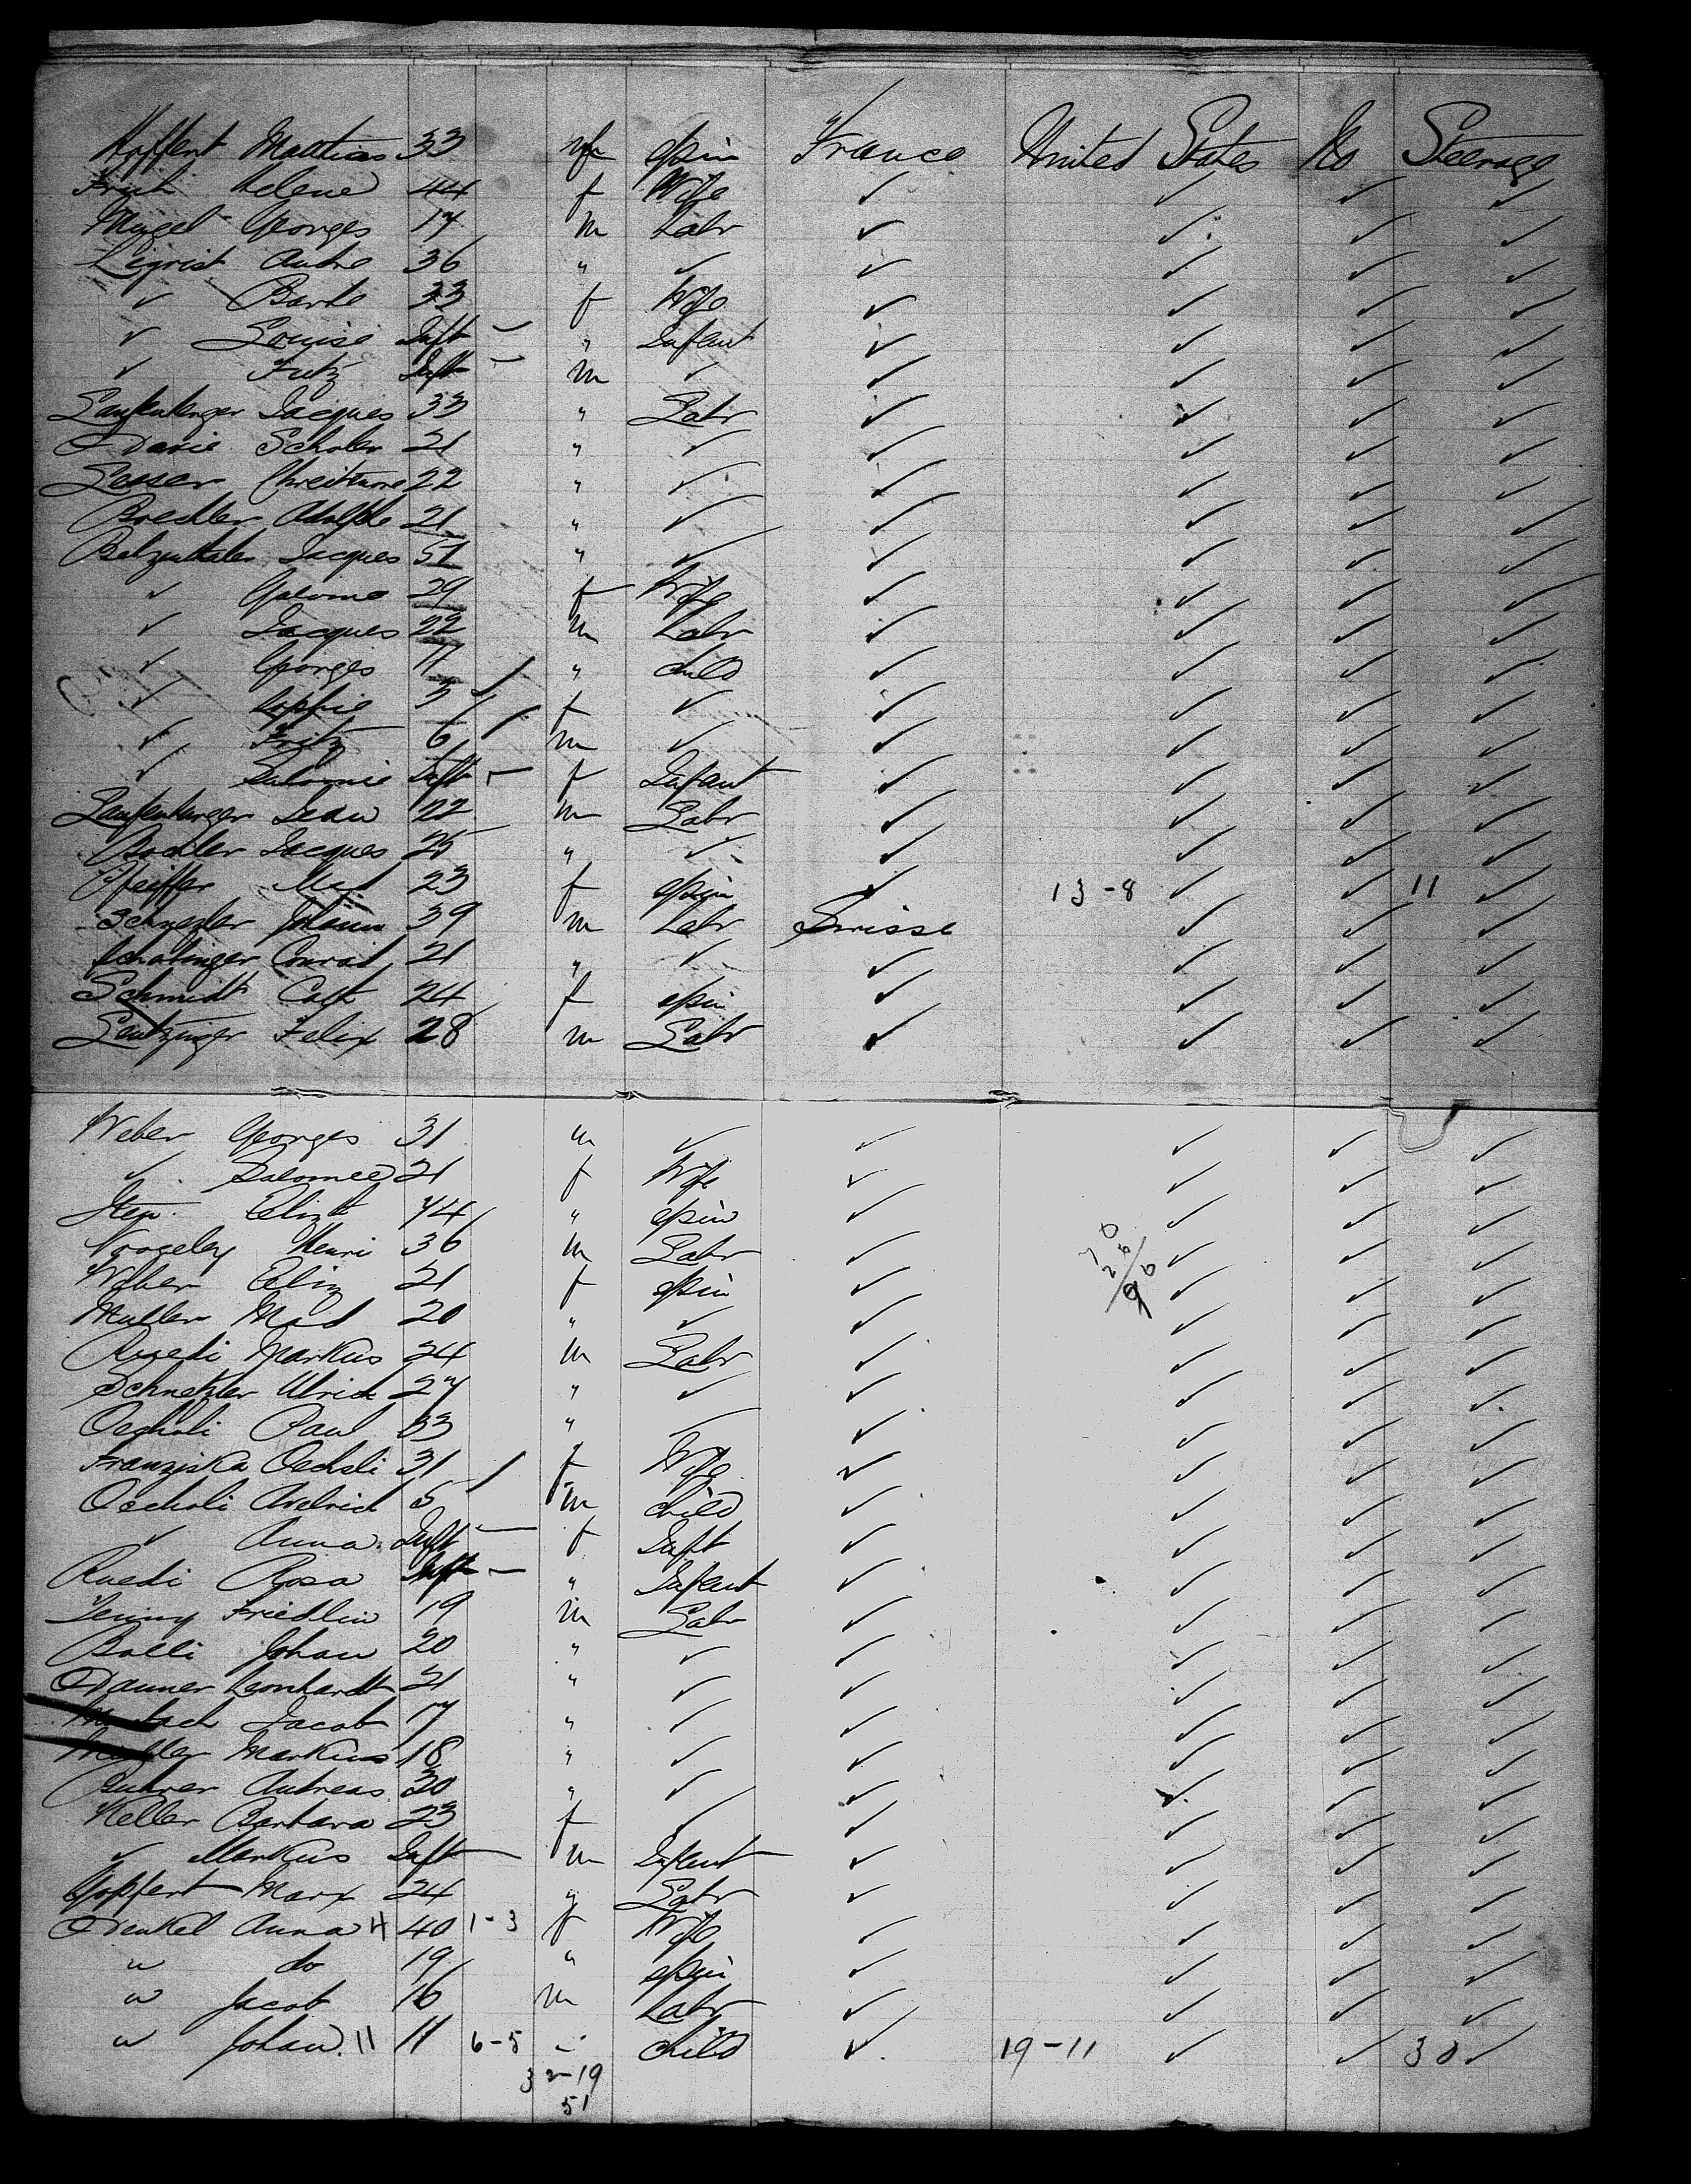 Hoffert Matthias 33 m spin France United States No Steerage
Fruh Helene 44 f Wife ✓ ✓ ✓ ✓
Mugel Georges 17 m Labr ✓ ✓ ✓ ✓
Ligrist Andre 36 " ✓ ✓ ✓ ✓ ✓
✓ Barbe 33 f Wife ✓ ✓ ✓ ✓
✓ Louise Inft f Infant ✓ ✓ ✓ ✓
✓ Fritz Inft m ✓ ✓ ✓ ✓ ✓
Laufenburger Jacques 33 " Labr ✓ ✓ ✓ ✓
Davie Scholer 21 " ✓ ✓ ✓ ✓ ✓
Lesser 22 " ✓ ✓ ✓ ✓ ✓
Boedler Adolphe 21 " ✓ ✓ ✓ ✓ ✓
Jacques 51 " ✓ ✓ ✓ ✓ ✓
✓ Salome 29 f Wife ✓ ✓ ✓ ✓
✓ Jacques 22 m Labr ✓ ✓ ✓ ✓
✓ Georges 11 " child ✓ ✓ ✓ ✓
✓ Sophie 3 f ✓ ✓ ✓ ✓ ✓
✓ Fritz 6 m ✓ ✓ ✓ ✓ ✓
✓ Salomie Inft f Infant ✓ ✓ ✓ ✓
Laufenburger Jean 22 m Labr ✓ ✓ ✓ ✓
Bodler Jacques 25 " ✓ ✓ ✓ ✓ ✓
Pfeiffer Mad 23 f spin ✓ 13-8 ✓ ✓ 11 ✓
Schnezler Johann 39 m Labr Suisse ✓ ✓ ✓
Schatinger Conrad 21 " ✓ ✓ ✓ ✓ ✓
Schmidt Cath 24 f spin ✓ ✓ ✓ ✓
Felix 28 m Labr ✓ ✓ ✓ ✓
Weber Georges 31 m ✓ ✓ ✓ ✓ ✓
✓ Salomee 21 f Wife ✓ ✓ ✓ ✓
Elizt 44 " spin ✓ ✓ ✓ ✓
Voogeley Henri 36 m Labr ✓ ✓ ✓ ✓
Weber Eliz 21 f spin ✓ ✓ ✓ ✓
Muller Mad 20 " ✓ ✓ ✓ ✓ ✓
Ruedi Markus 24 m Labr ✓ ✓ ✓ ✓
Schnetzler Ulrich 27 " ✓ ✓ ✓ ✓ ✓
Oechsli Paul 33 " ✓ ✓ ✓ ✓ ✓
Franziska Oechsli 31 f Wife ✓ ✓ ✓ ✓
Oechsli 5 m child ✓ ✓ ✓ ✓
✓ Anna Inft f Inft ✓ ✓ ✓ ✓
Ruedi Rosa Inft " Infant ✓ ✓ ✓ ✓
Jenny Friedlin 19 m Labr ✓ ✓ ✓ ✓
Bolli Johan 20 " ✓ ✓ ✓ ✓ ✓
Danner Leonhardt 21 " ✓ ✓ ✓ ✓ ✓
Jacob 17 " ✓ ✓ ✓ ✓ ✓
Markius 18 " ✓ ✓ ✓ ✓ ✓
Buhrer Andreas 20 " ✓ ✓ ✓ ✓ ✓
Keller Barbara 23 f ✓ ✓ ✓ ✓ ✓
✓ Markus Inft m Infant ✓ ✓ ✓ ✓
Goppert Marx 24 " Labr ✓ ✓ ✓ ✓
Denkel Anna 4 40 1-3 f Wife ✓ ✓ ✓
" do 19 " spin ✓ ✓ ✓ ✓
" Jacob 16 m Labr ✓ ✓ ✓ ✓
" Johan 11 11 6-5 child ✓ 19-11 ✓ ✓ 30 ✓
32-19
51